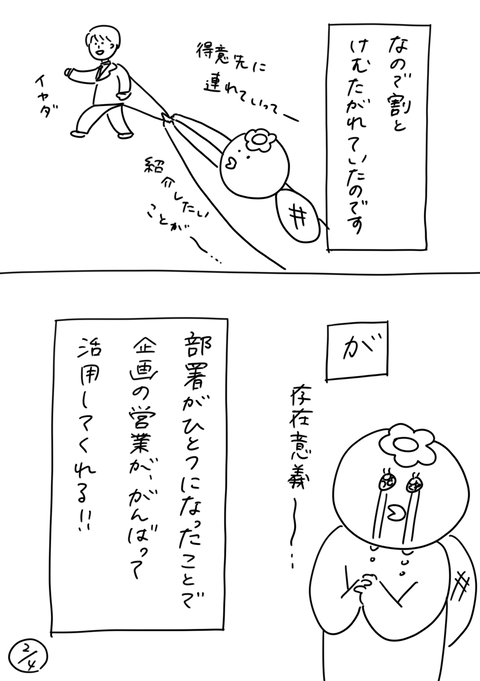 なので割と
けむたがれていたのです
得意先に
連れていってー
紹介したい
ことがー
イヤダ
が
存在意義
部署がひとつになったことで
企画の営業が、がんばって
活用してくれる!!
2/4